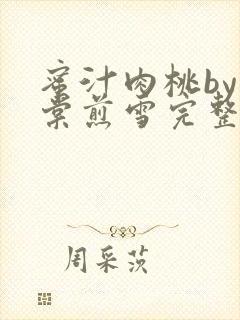 蜜汁肉桃by
棠煎雪完整
周采茨